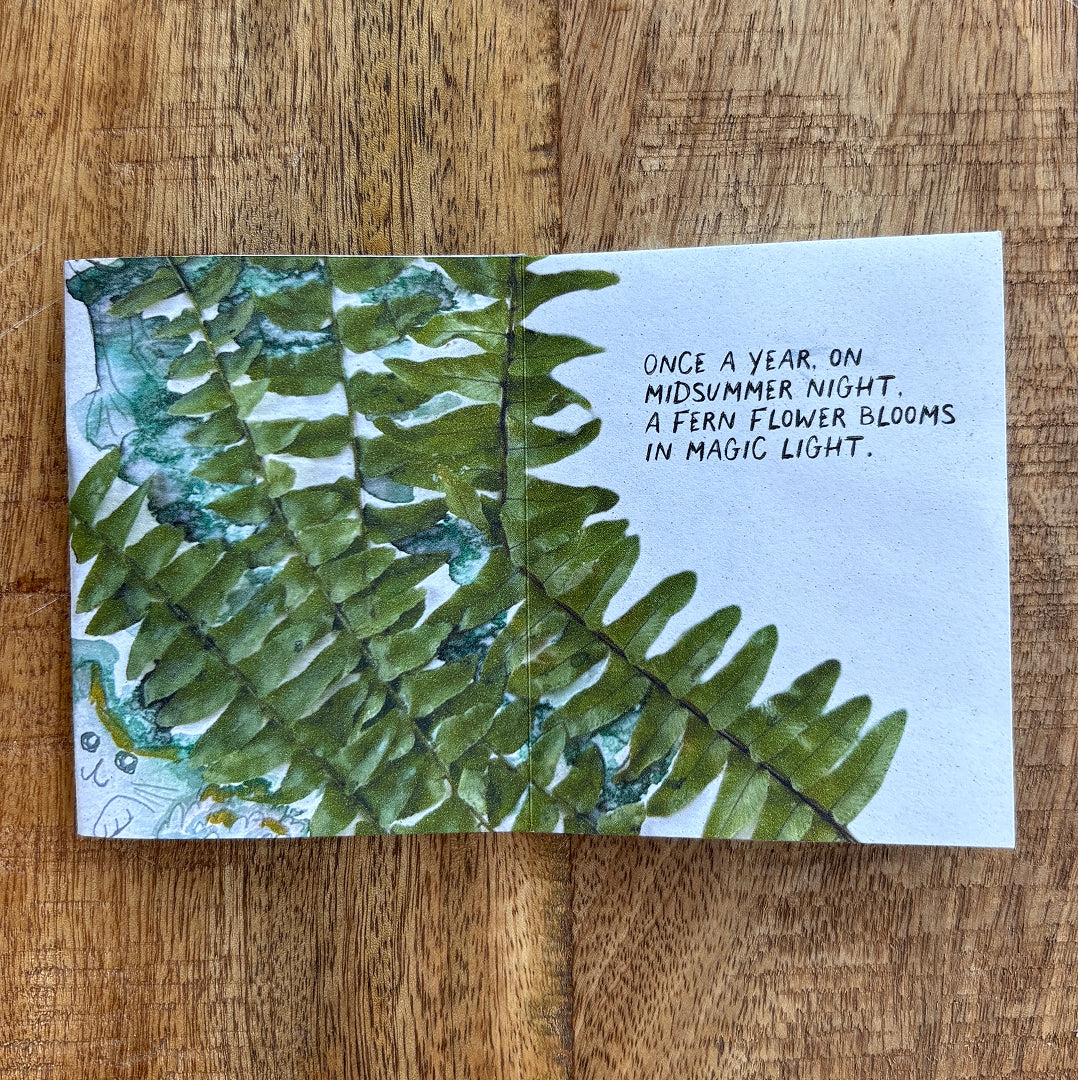 ONCE A YEAR, ON
MIDSUMMER NIGHT,
A FERN FLOWER BLOOMS
IN MAGIC LIGHT.